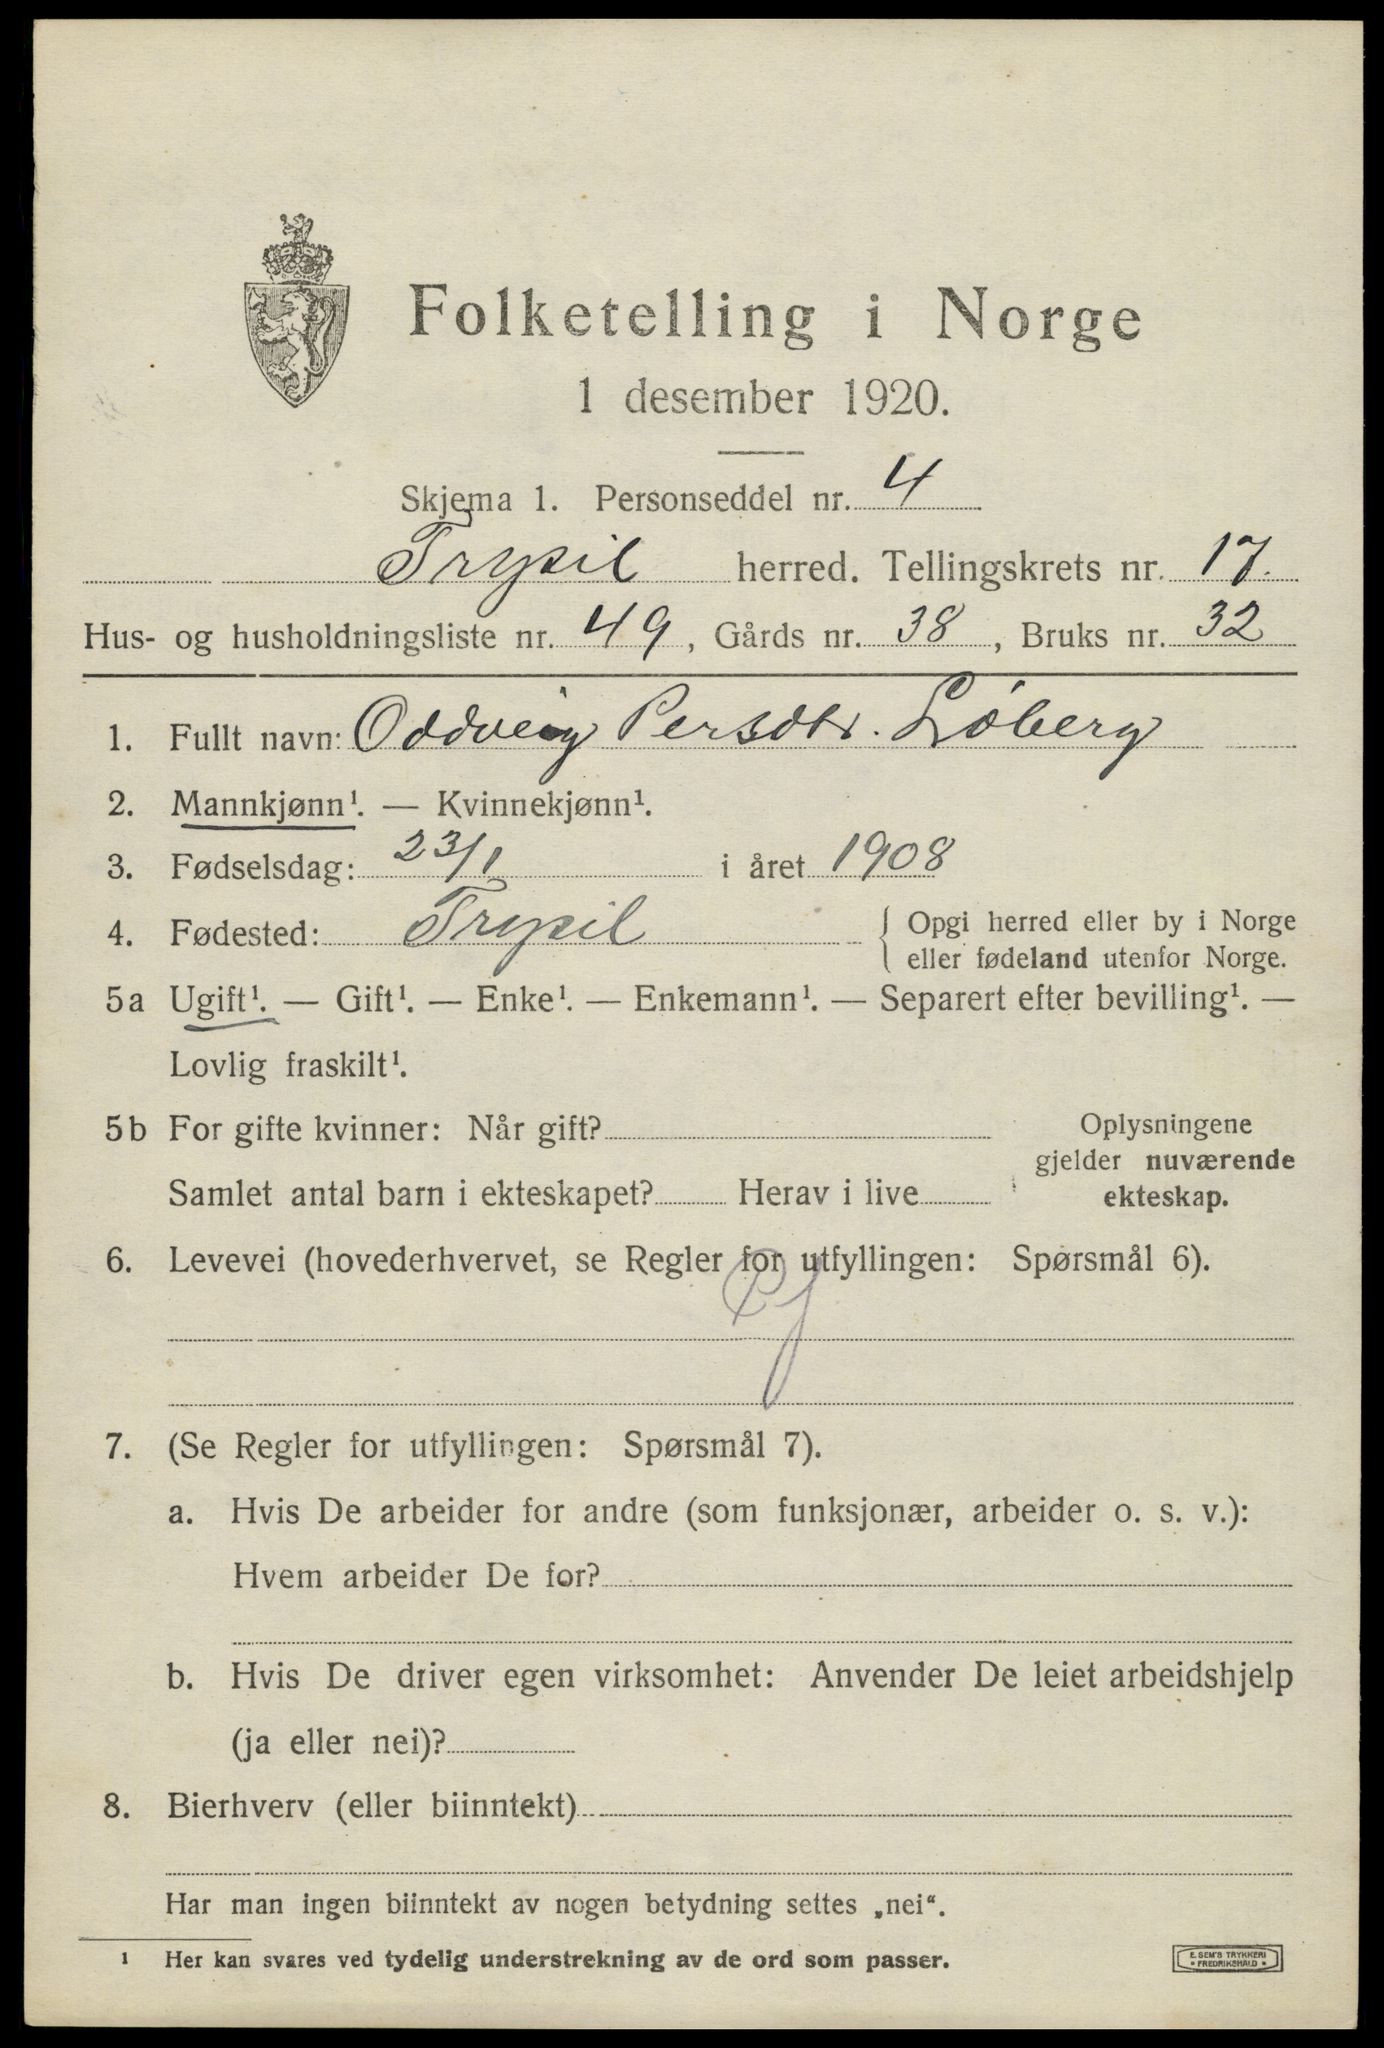 Folketelling i Norge
1 desember 1920.
Skjema 1. Personseddel nr. 4
Trysil herred. Tellingskrets nr. 17.
Hus- og husholdningsliste nr. 49, Gårds nr. 38, Bruks nr. 32
1. Fullt navn: Oddveig Persdtr. Løberg
2. Mannkjønn¹. — Kvinnekjønn¹.
3. Fødselsdag: 23/1 i året 1908
4. Fødested: Trysil { Opgi herred eller by i Norge
eller fødeland utenfor Norge.
5a Ugift¹. — Gift¹. — Enke¹. — Enkemann¹. — Separert efter bevilling¹. —
Lovlig fraskilt¹.
5b For gifte kvinner: Når gift?
Samlet antal barn i ekteskapet? Herav i live
Oplysningene
gjelder nuværende
ekteskap.
6. Levevei (hovederhvervet, se Regler for utfyllingen: Spørsmål 6).
7. (Se Regler for utfyllingen: Spørsmål 7).
a. Hvis De arbeider for andre (som funksjonær, arbeider o. s. v.):
Hvem arbeider De for?
b. Hvis De driver egen virksomhet: Anvender De leiet arbeidshjelp
(ja eller nei)?
8. Bierhverv (eller biinntekt)
Har man ingen biinntekt av nogen betydning settes „nei“.
¹ Her kan svares ved tydelig understrekning av de ord som passer.
E. SEM'S TRYKKERI
• FREDRIKSHALD •